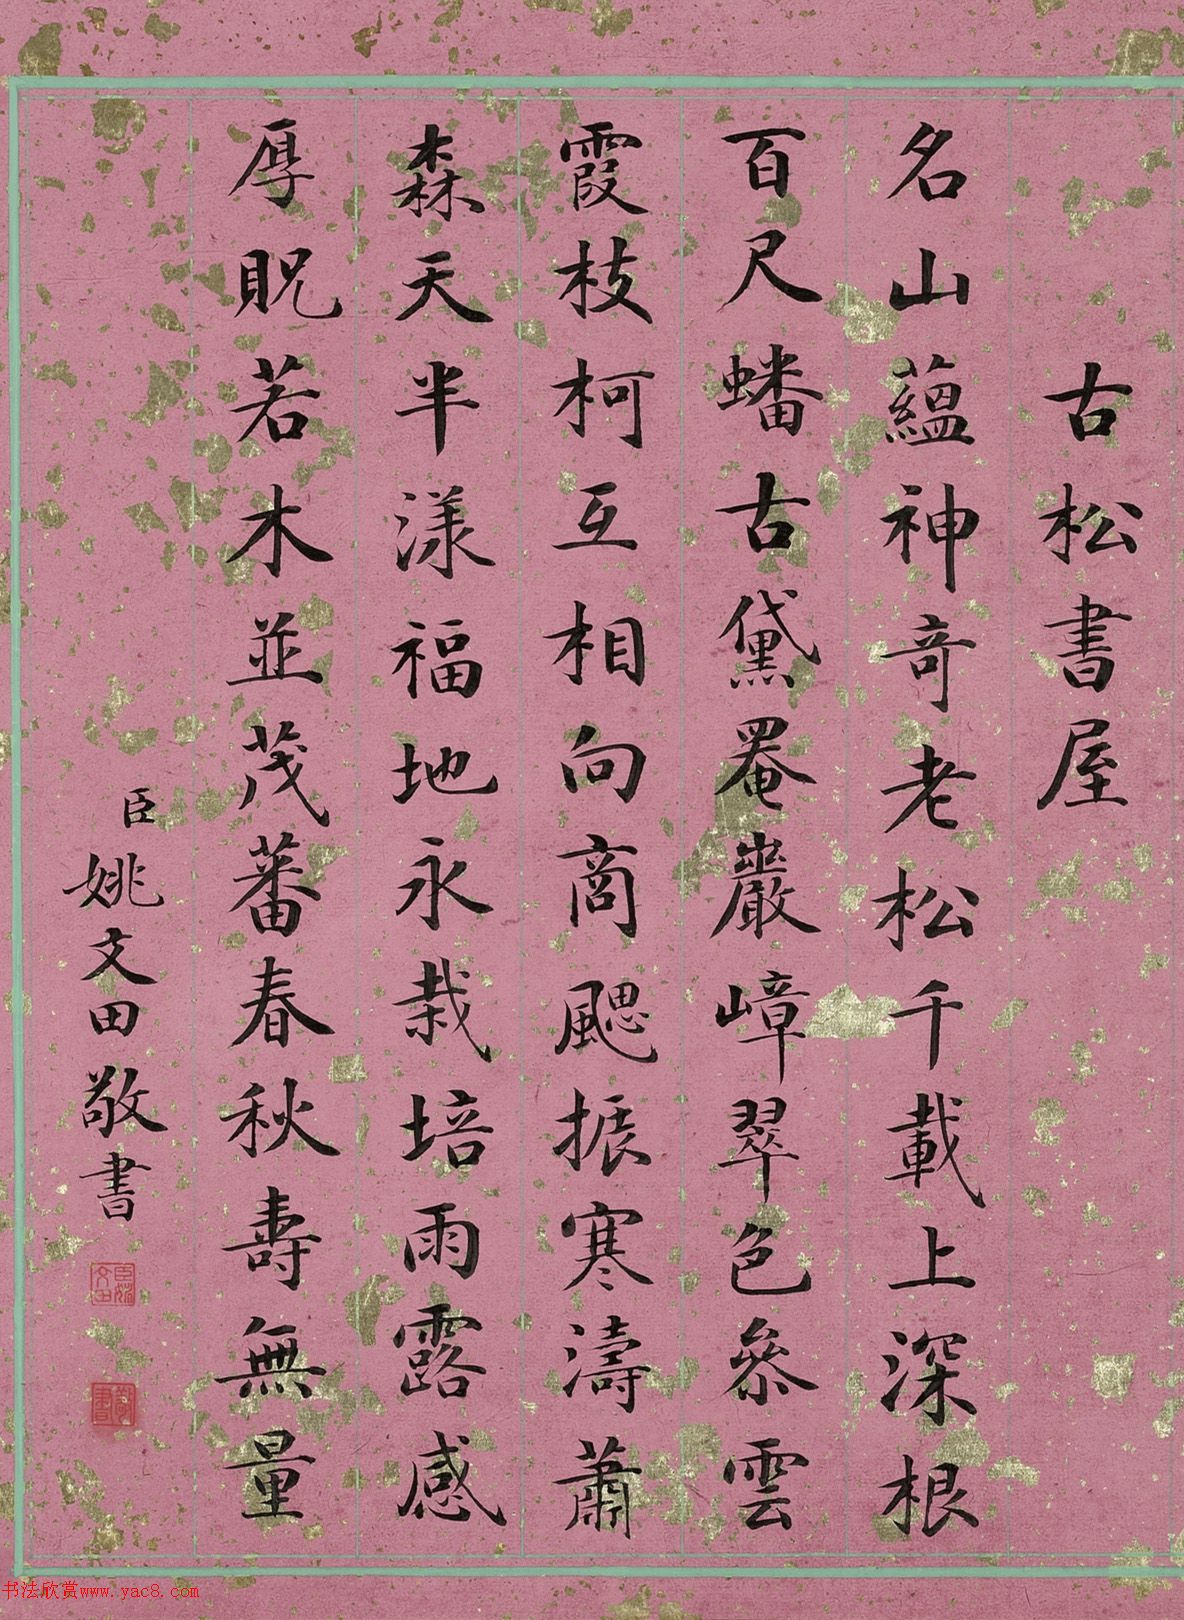 古松書屋
名山蘊神奇老松千載上深根
百尺蟠古黛罨巖嶂翠色叅雲
霞枝柯互相向商颸振寒濤蕭
森天半漾福地永栽培雨露感
厚貺若木並茂蕃春秋壽無量
臣姚文田敬書
臣姚文田
敬書
书法欣赏www.yac8.com